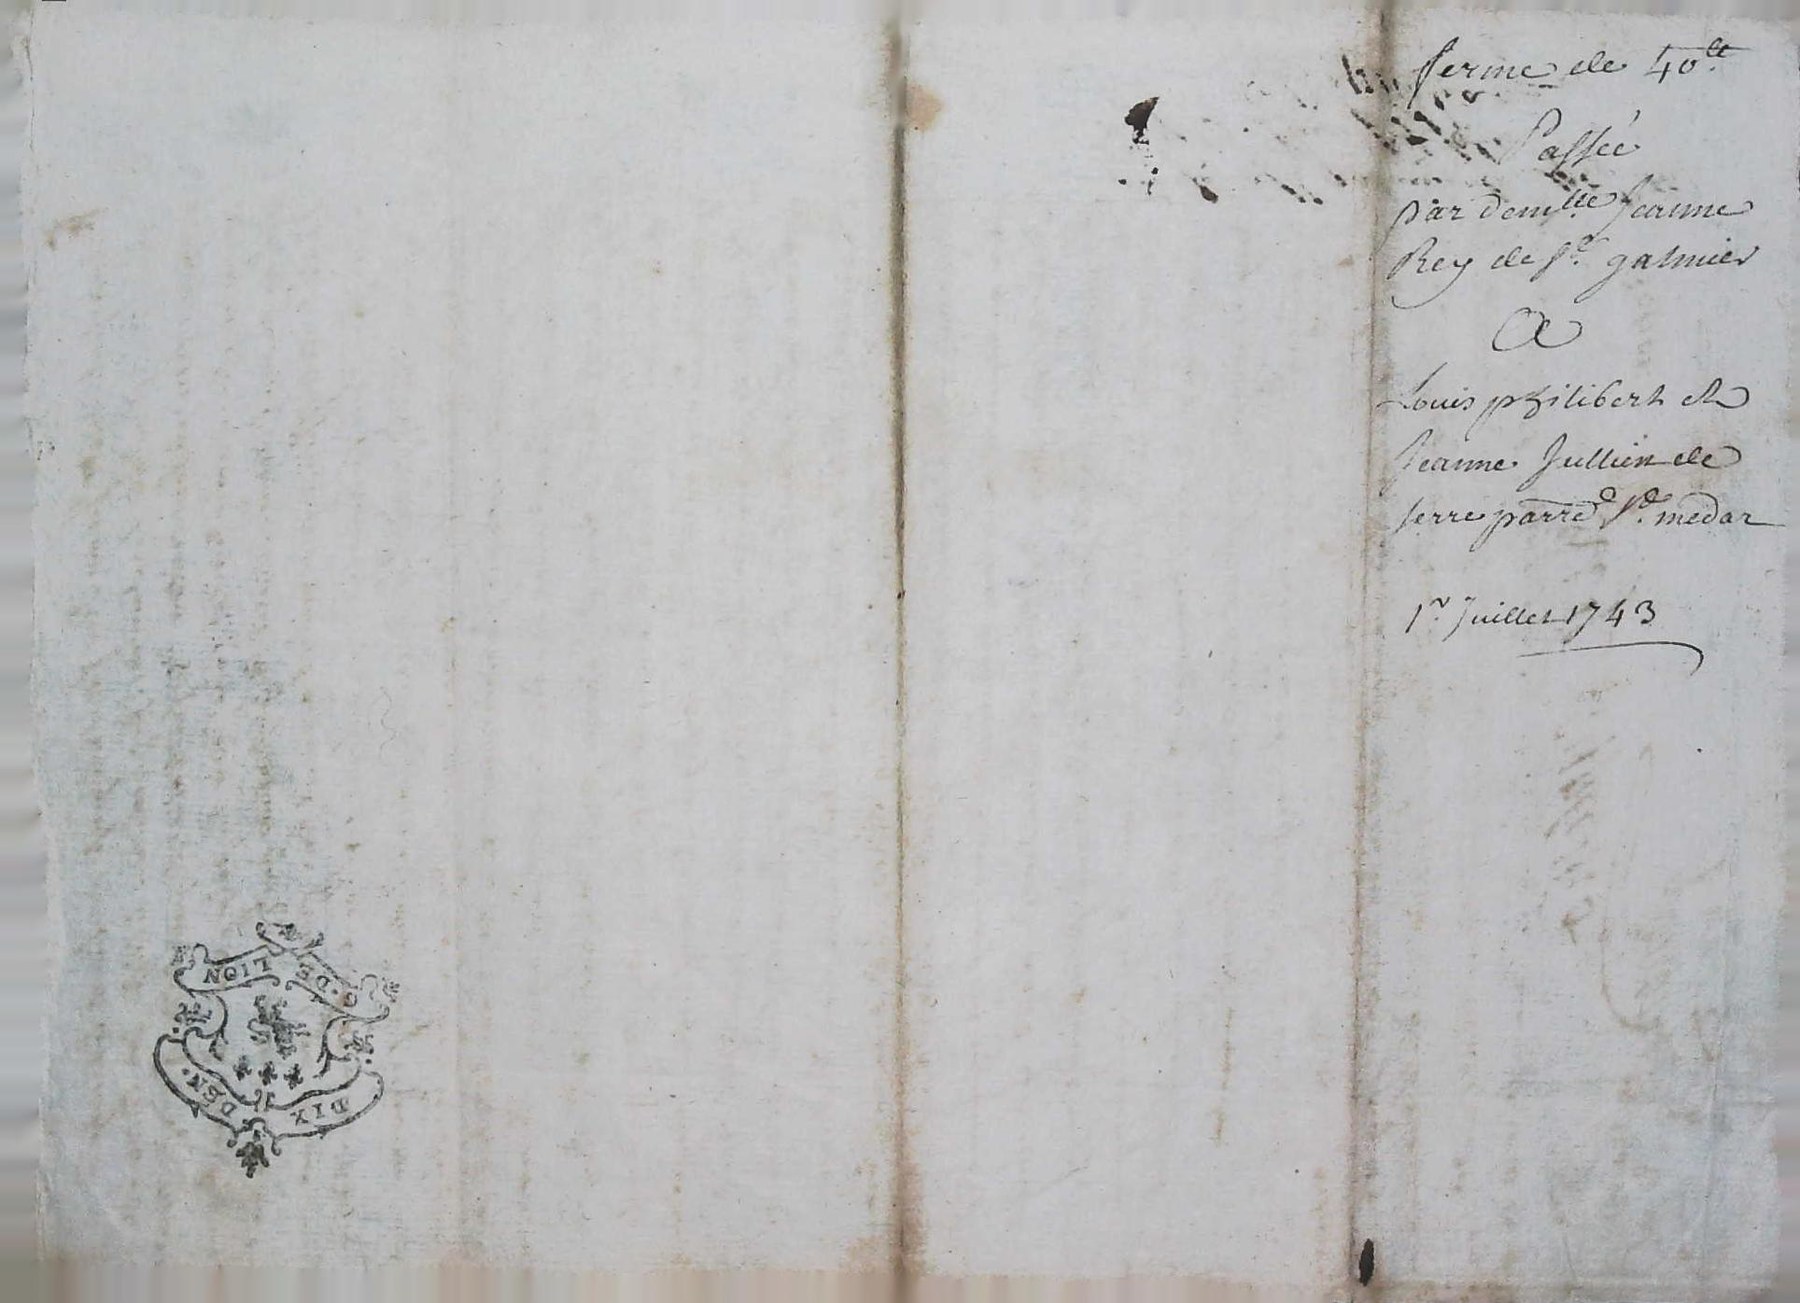 ferme de 40lt
Passée
par demlle Jeanne
Rey de St galmier
A
Louis philibert et
Jeanne Jullien de
serre parrd St medar
1r Juillet 1743
G. DE LION
DIX DEN.